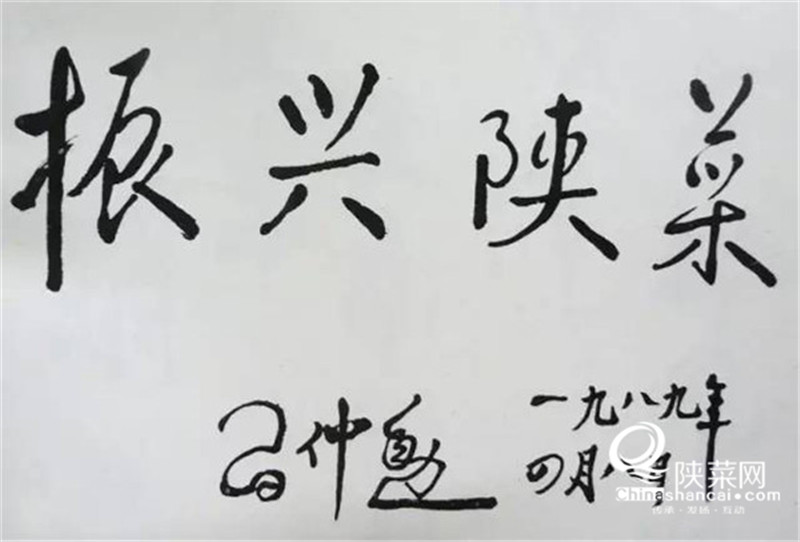 振兴陕菜
习仲勋 一九八九年
四月八日
陕菜网
Chinashancai.com
传承·发扬·互动